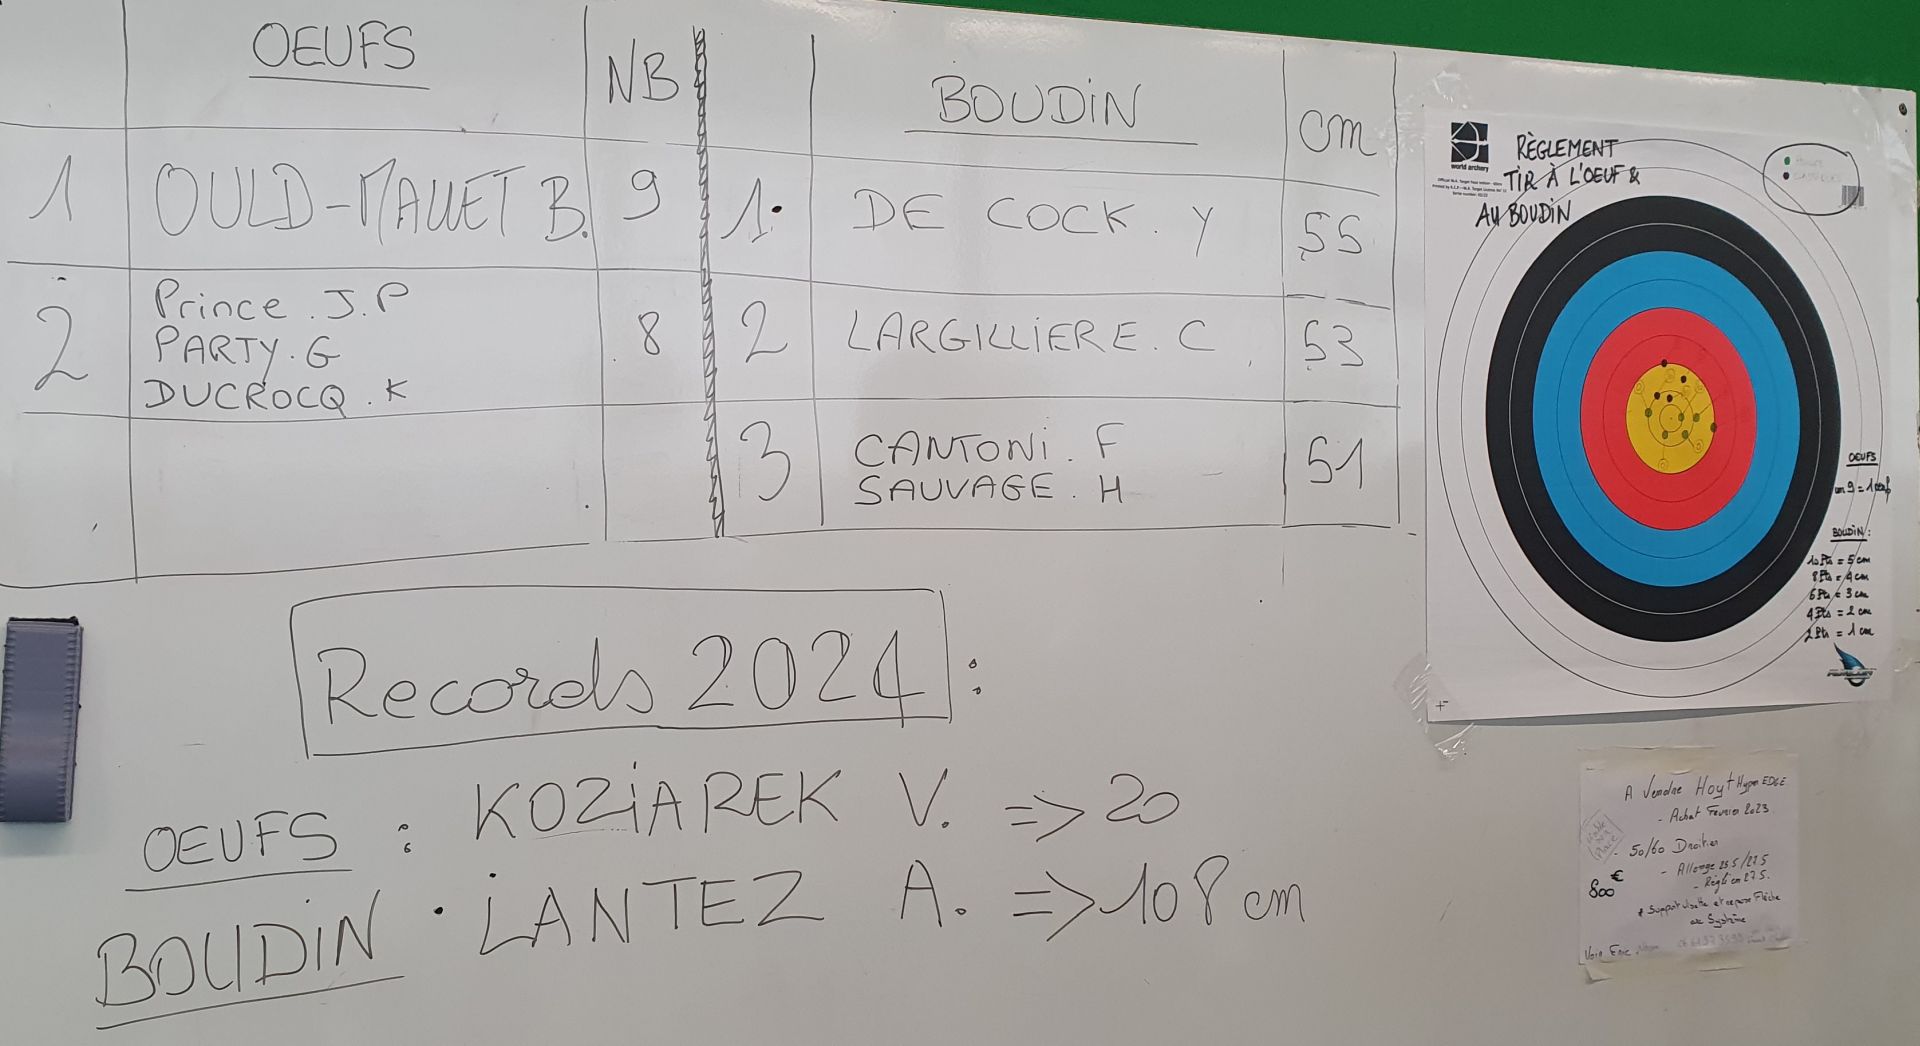 OEUFS NB
1 OULD-MALLET B. 9
2 Prince . J.P
PARTY . G 8
DUCROCQ . K
BOUDIN cm
1. DE COCK . Y 55
2 LARGILLIERE . C 53
3 CANTONI . F
SAUVAGE . H 51
Records 2024 :
OEUFS : KOZIAREK V. => 20
BOUDIN : LANTEZ A. => 108 cm
world archery
RÈGLEMENT
TIR À L'OEUF &
AU BOUDIN
OEUFS
un 9 = 1 oeuf
BOUDIN :
10 Pts = 5 cm
8 Pts = 4 cm
6 Pts = 3 cm
4 Pts = 2 cm
2 Pts = 1 cm
A Vendre Hoyt Hyper EDGE
- Achat Février 2023.
- 50/60 Droitier
- Allonge 25.5/27.5
- Réglé en 27.5.
800 €
* Support viseur et repose Flèche
Voir Eric